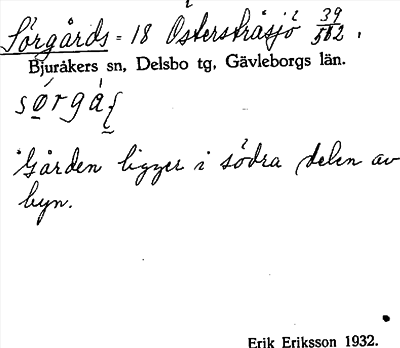 Sörgårds = 18 Östersträsjö 39/502.
Bjuråkers sn, Delsbo tg, Gävleborgs län.
Gården ligger i södra delen av
byn.
Erik Eriksson 1932.